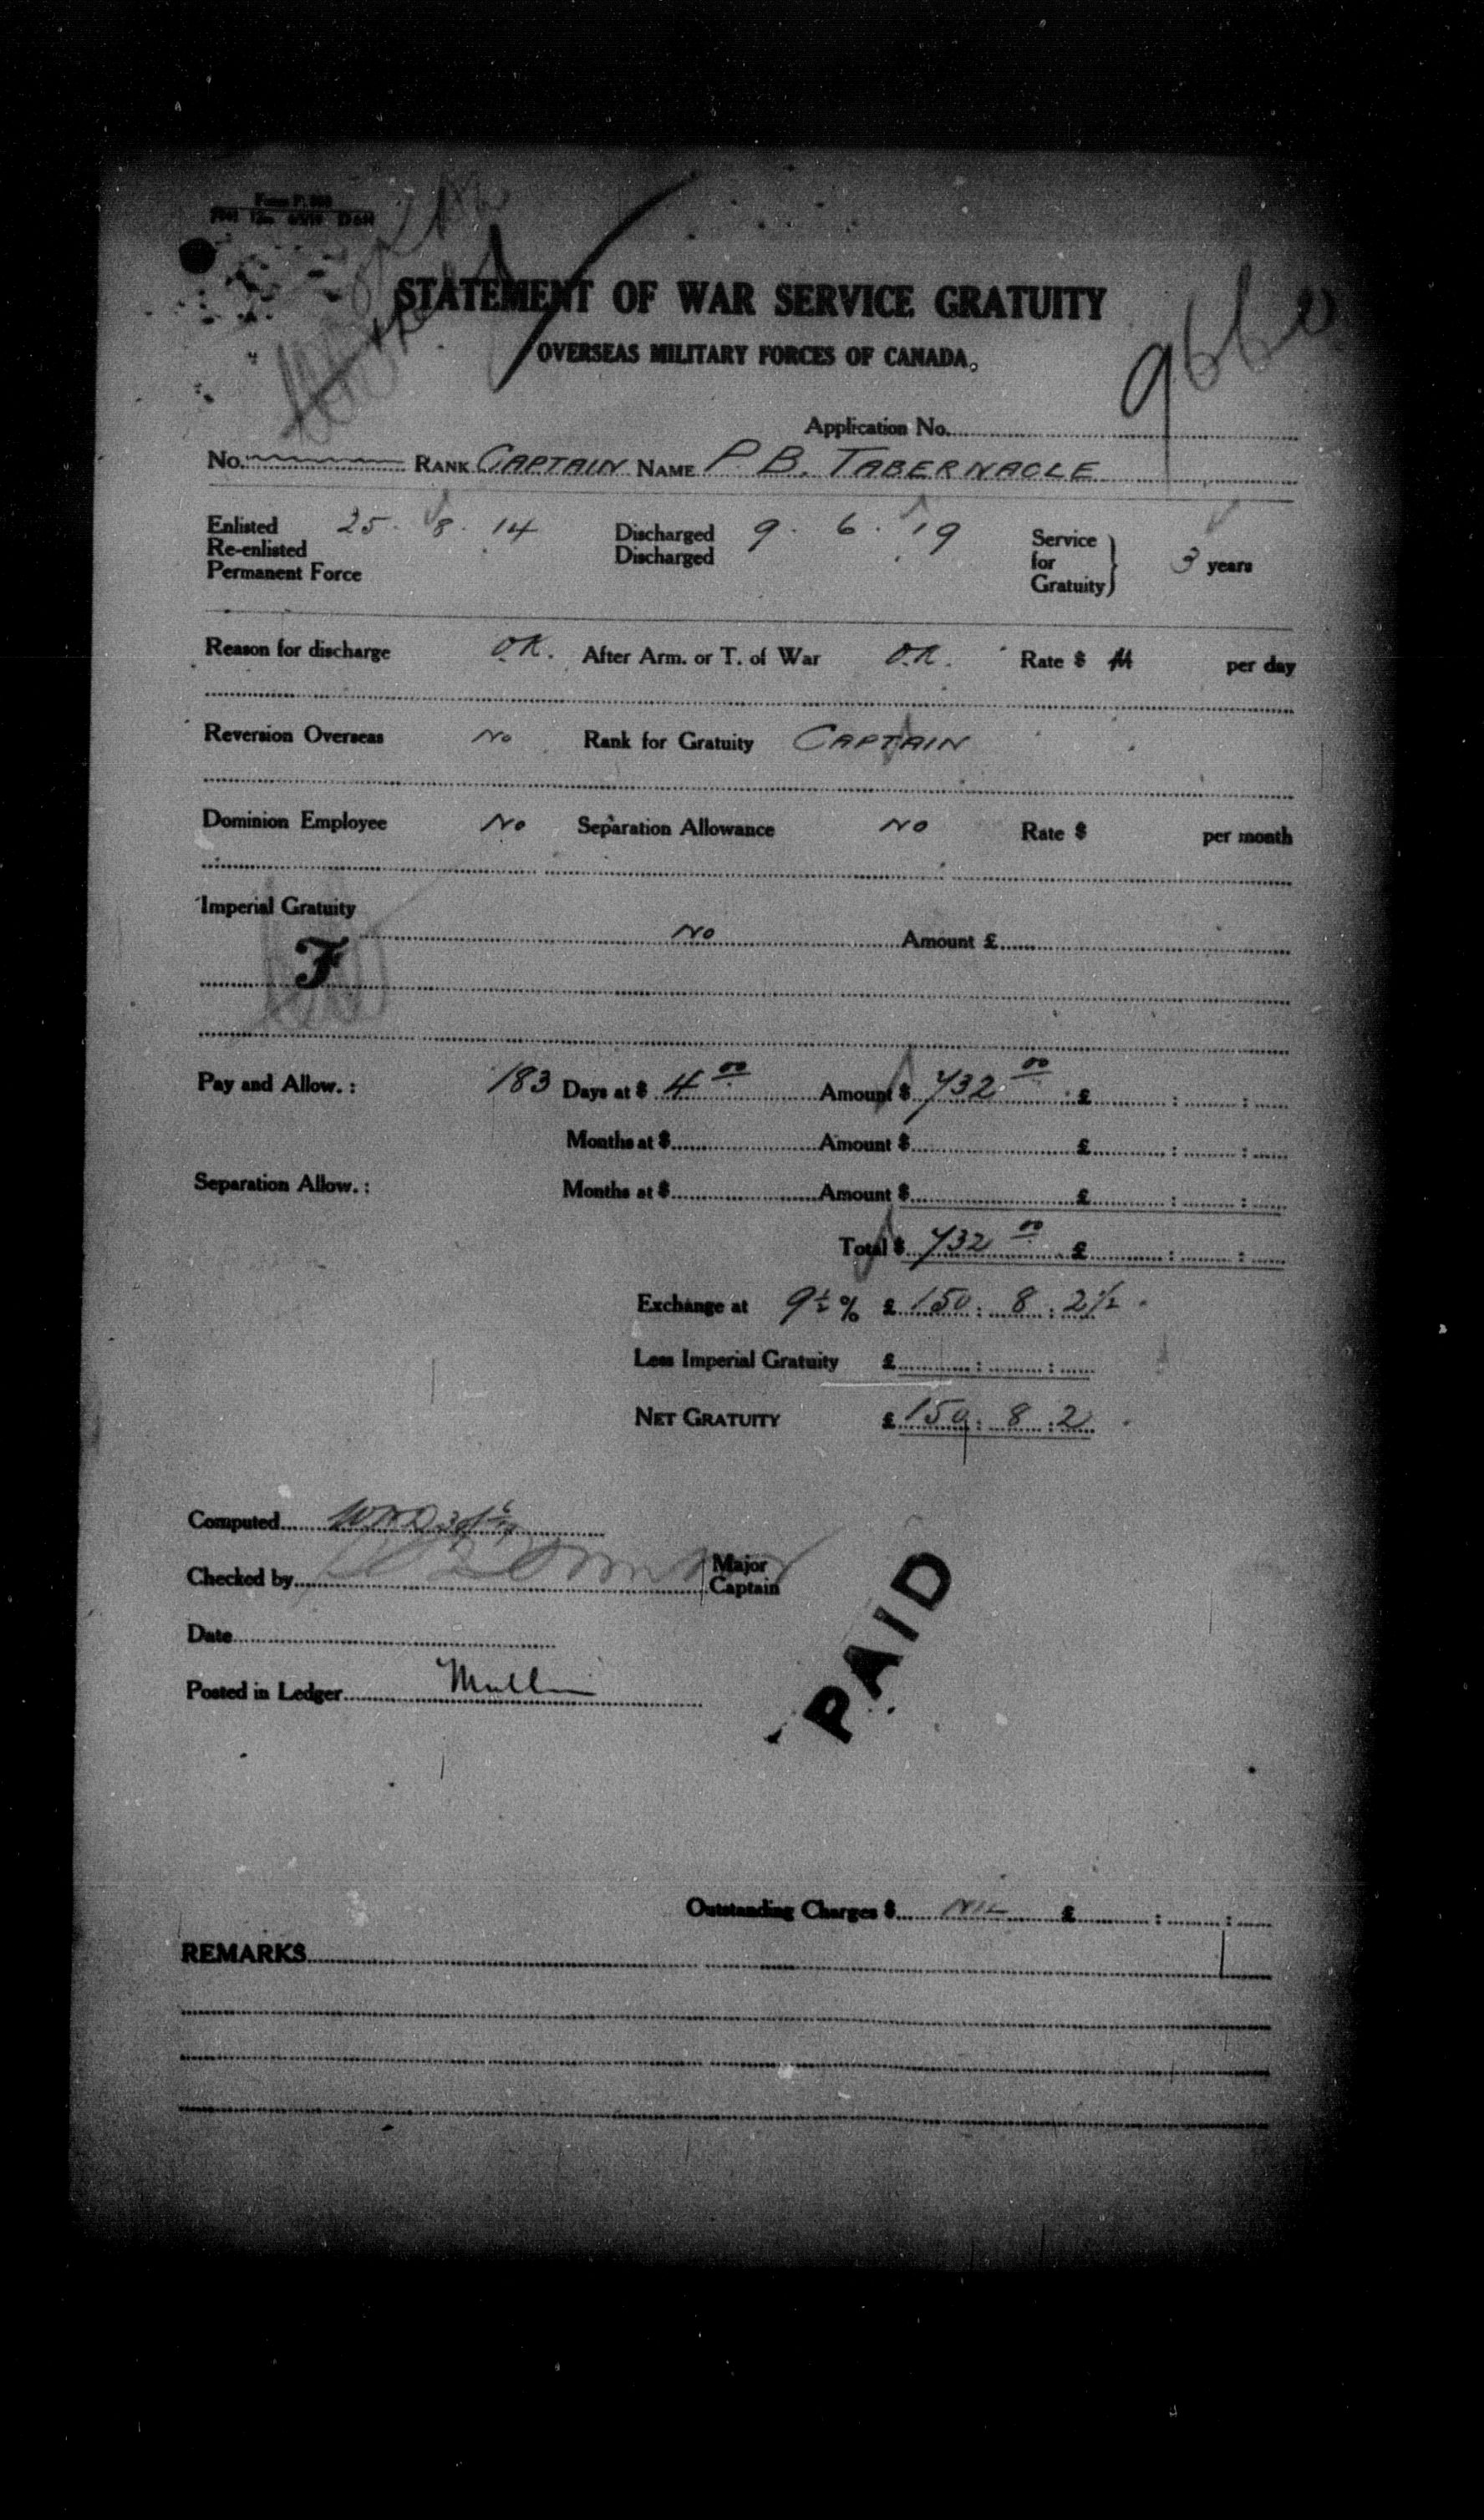 STATEMENT OF WAR SERVICE GRATUITY
OVERSEAS MILITARY FORCES OF CANADA.
Application No. 9660
No. RANK CAPTAIN NAME P. B. TABERNACLE
Enlisted 25. 8. 14 Discharged 9. 6. 19 Service
Re-enlisted Discharged for 3 years
Permanent Force Gratuity
Reason for discharge O.K. After Arm. or T. of War O.K. Rate $ per day
Reversion Overseas No Rank for Gratuity CAPTAIN
Dominion Employee No Separation Allowance No Rate $ per month
Imperial Gratuity No Amount £
F
Pay and Allow.: 183 Days at $ 4 00 Amount $ 732 00 £ : :
Months at $ Amount $ £ : :
Separation Allow.: Months at $ Amount $ £ : :
Total $ 732 00 £ : :
Exchange at 9½ % £ 150 : 8 : 2½
Less Imperial Gratuity £ : :
NET GRATUITY £ 150 : 8 : 2
Computed
Checked by Major
Captain
Date
Posted in Ledger
PAID
Outstanding Charges $ NIL £ : :
REMARKS